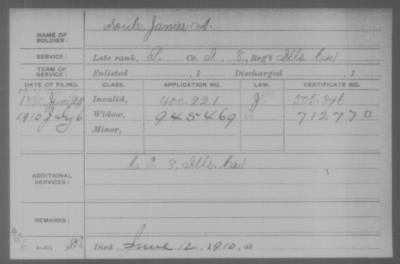 NAME OF SOLDIER: Soule James A.
SERVICE: Late rank, P. Co. I, 8, Reg't Ills Cav
TERM OF SERVICE: Enlisted , 1 Discharged , 1
DATE OF FILING. CLASS. APPLICATION NO. LAW. CERTIFICATE NO.
1880 June Invalid, 400.221 J
1910 July 6 Widow, 945469 712770
Minor,
ADDITIONAL SERVICES: 8. Ills. Cav
REMARKS:
Died June 12, 1910, at